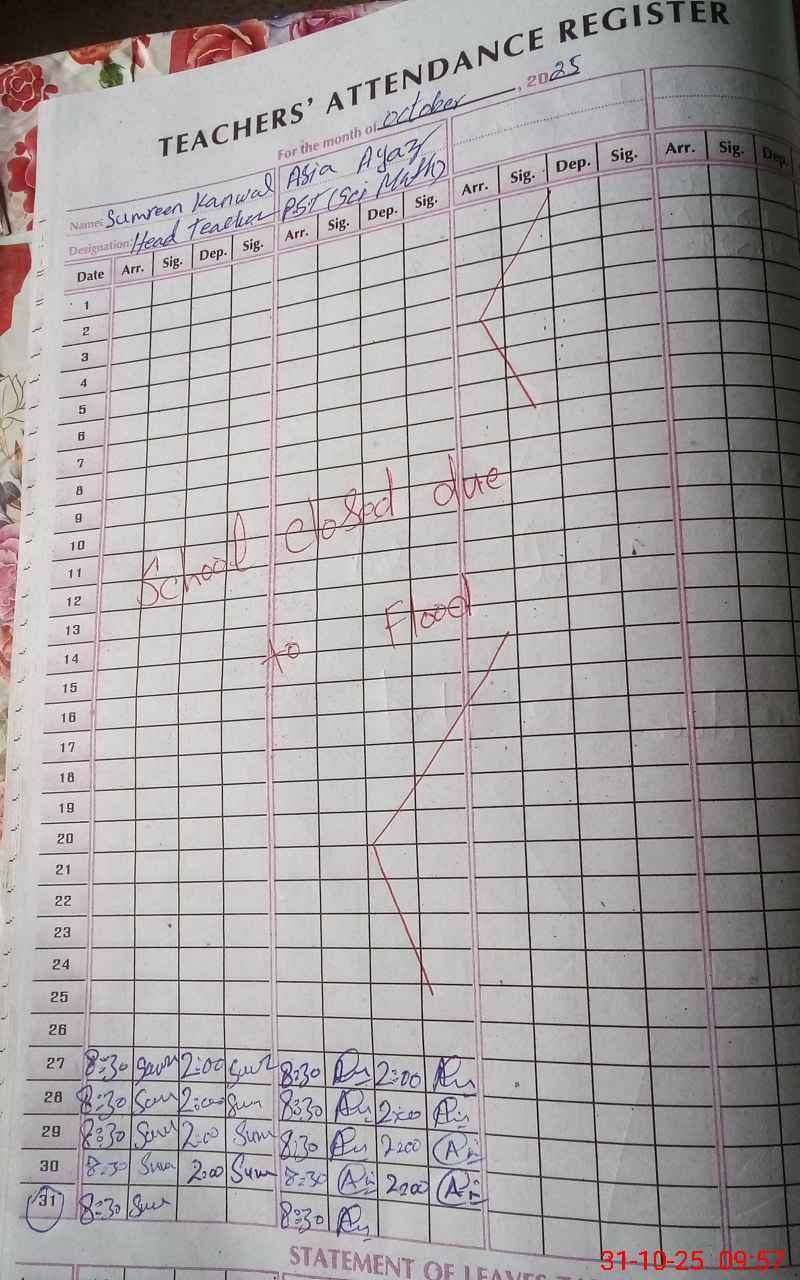 TEACHERS' ATTENDANCE REGISTER
For the month of october, 2025
Name: Sumreen Kanwal Asia Ayaz
Designation: Head Teacher PST (Sci Math)
Date Arr. Sig. Dep. Sig. Arr. Sig. Dep. Sig. Arr. Sig. Dep. Sig. Arr. Sig. Dep.
1
2
3
4
5
6
7
8
9
10
11
12
13
14
15
16
17
18
19
20
21
22
23
24
25
26
School closed due
to Flood
27 8:30 2:00 8:30 2:00
28 8:30 2:00 8:30 2:00
29 8:30 2:00 8:30 2:00
30 8:30 2:00 8:30 2:00
31 8:30 8:30
STATEMENT OF LEAVES
31-10-25 09:57